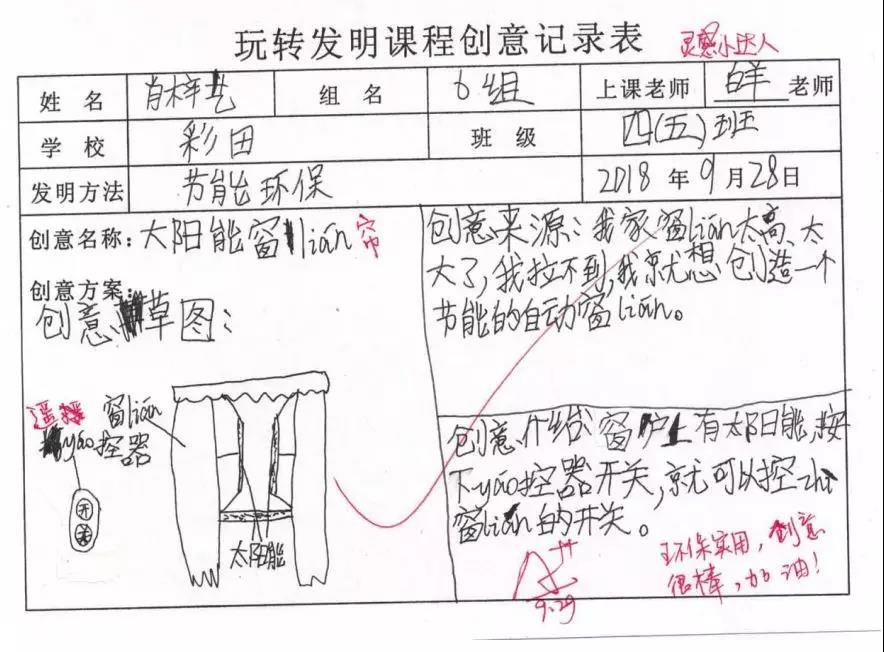 玩转发明课程创意记录表 灵感小达人
姓 名 肖梓 组 名 6组 上课老师 羊老师
学 校 彩田 班 级 四(五)班
发明方法 节能环保 2018年9月28日
创意名称:太阳能窗lián帘
创意方案:
创意草图:
遥控 窗lián
yáo控器
开
关
太阳能
创意来源:我家窗lián太高、太
大了,我拉不到,我就想创造一个
节能的自动窗lián。
创意介绍:窗户上有太阳能,按
下yáo控器开关,就可以控zhì
窗lián的开关。
A++
9.29
环保实用,创意
很棒,加油!